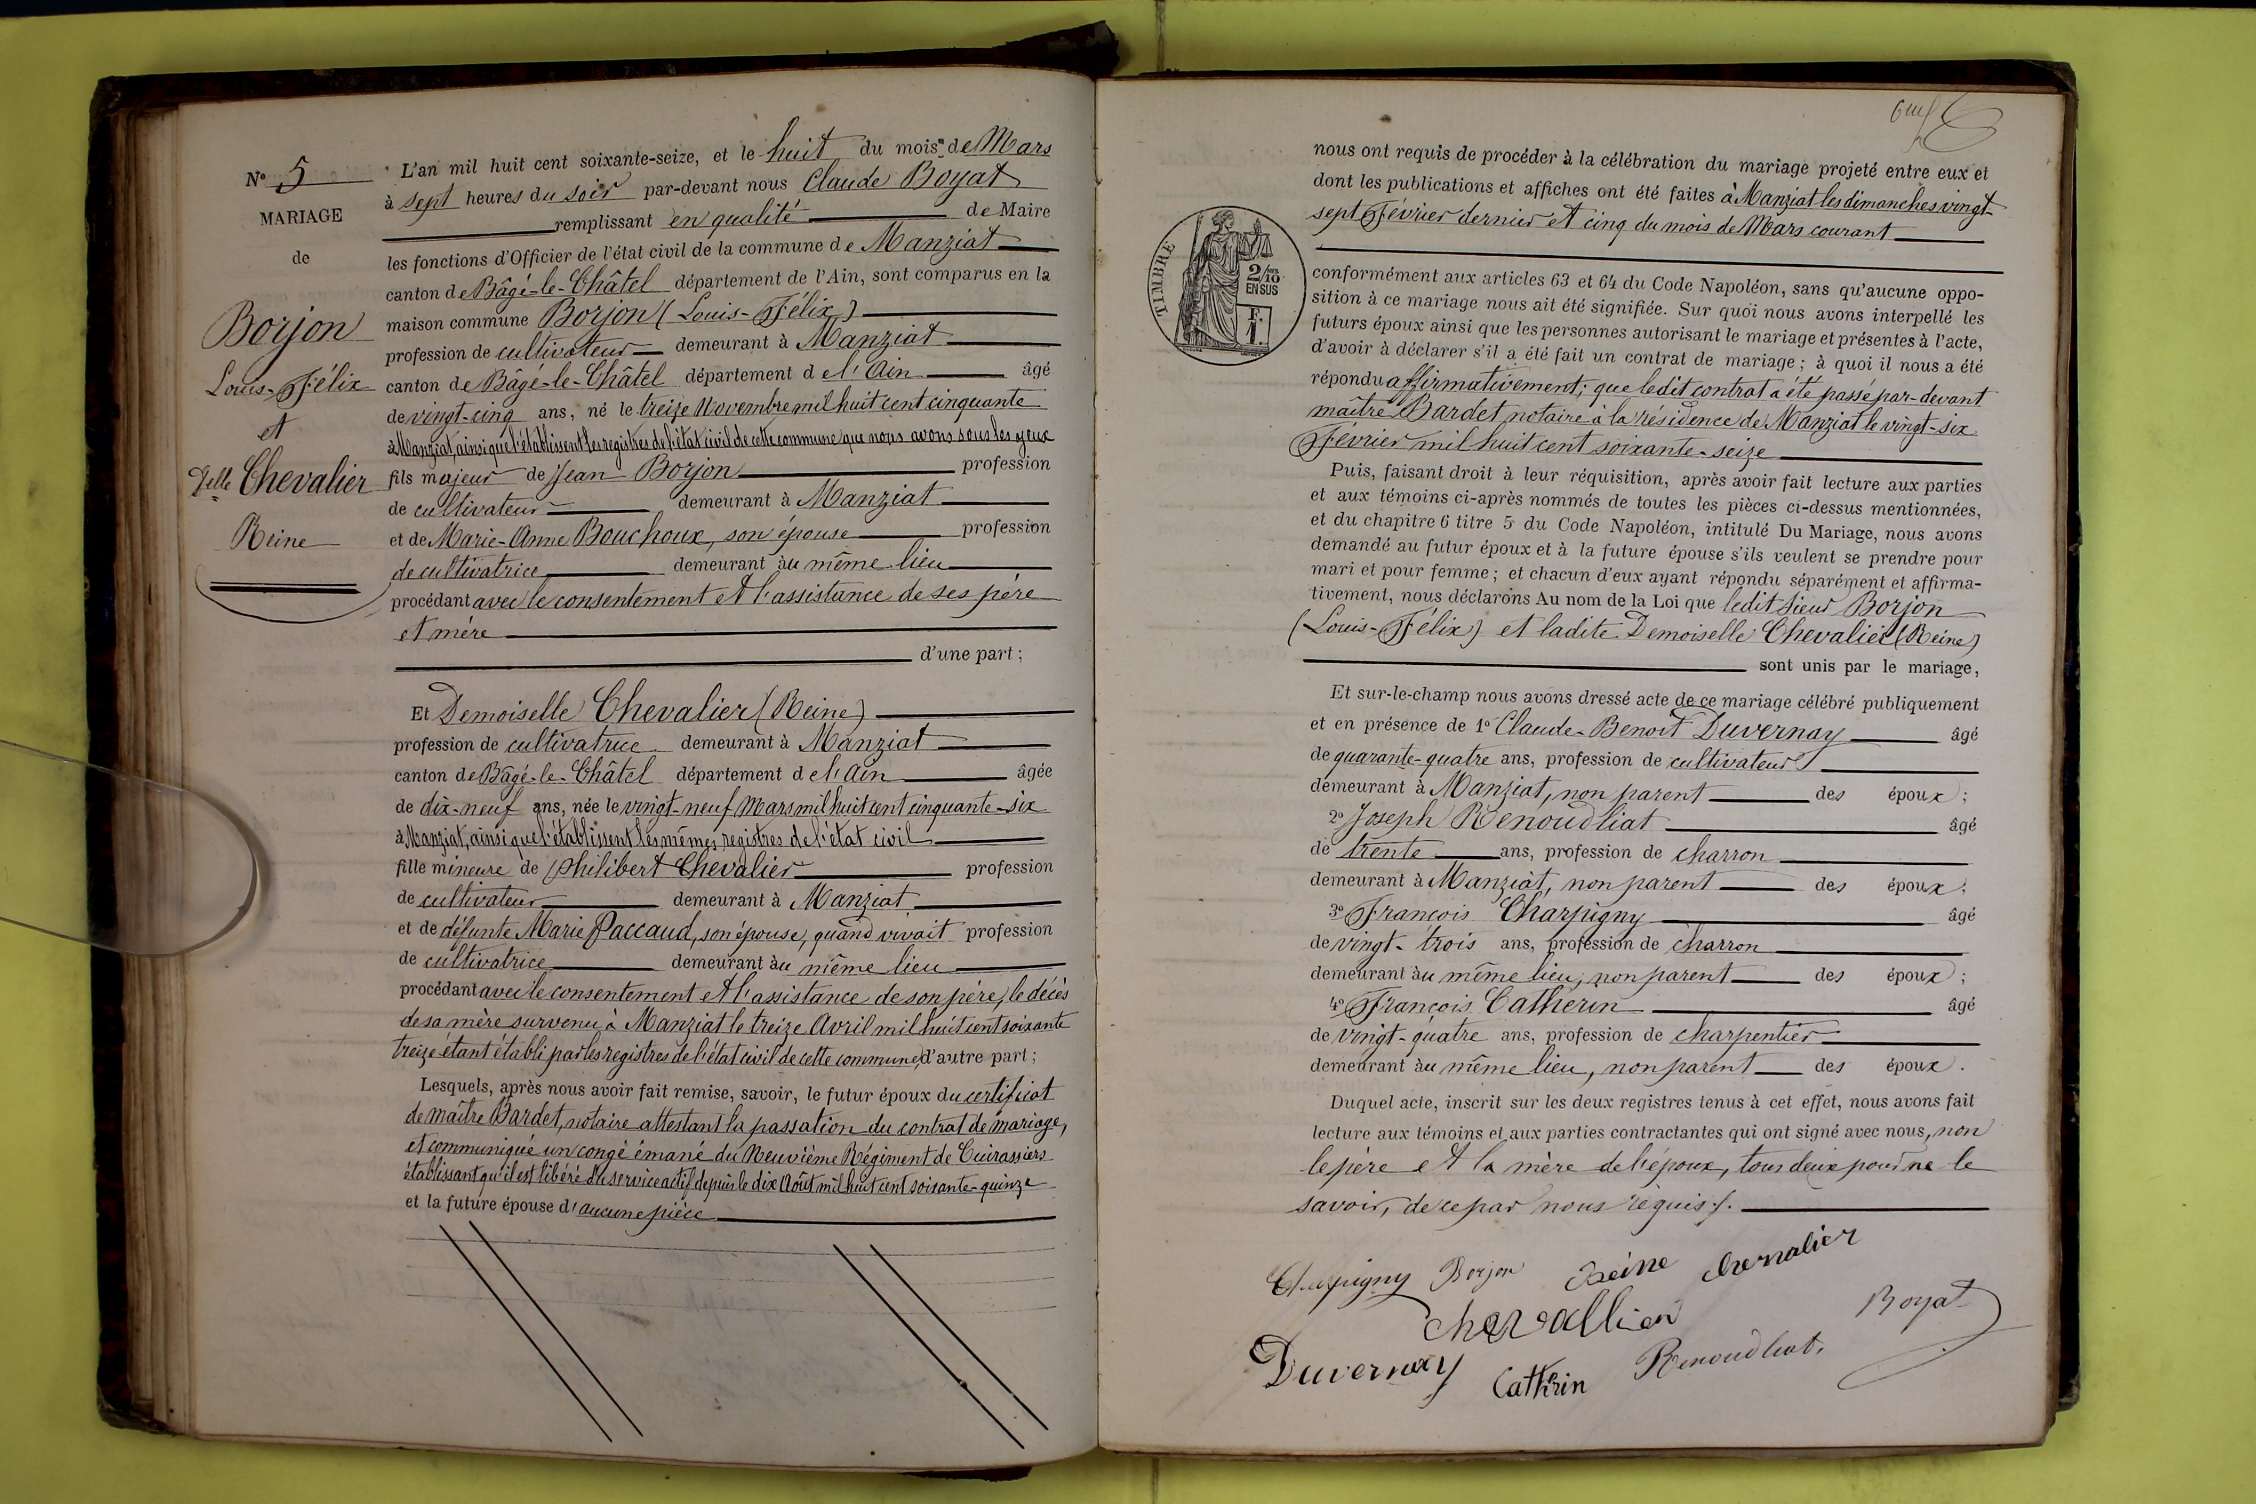 N° 5
MARIAGE
de
Borjon
Louis-Félix
et
Delle Chevalier
Reine
L'an mil huit cent soixante-seize, et le huit du mois de Mars
à sept heures du soir par-devant nous Claude Boyat
remplissant en qualité de Maire
les fonctions d'Officier de l'état civil de la commune de Manziat
canton de Bâgé-le-Châtel département de l'Ain, sont comparus en la
maison commune Borjon (Louis-Félix)
profession de cultivateur demeurant à Manziat
canton de Bâgé-le-Châtel département de l'Ain âgé
de vingt-cinq ans, né le treize Novembre mil huit cent cinquante
à Manziat, ainsi que l'établissent les registres de l'état civil de cette commune que nous avons sous les yeux
fils majeur de Jean Borjon profession
de cultivateur demeurant à Manziat
et de Marie-Anne Bouchoux, son épouse profession
de cultivatrice demeurant au même lieu
procédant avec le consentement et l'assistance de ses père
et mère
d'une part;
Et Demoiselle Chevalier (Reine)
profession de cultivatrice demeurant à Manziat
canton de Bâgé-le-Châtel département de l'Ain âgée
de dix-neuf ans, née le vingt-neuf Mars mil huit cent cinquante-six
à Manziat, ainsi que l'établissent les mêmes registres de l'état civil
fille mineure de Philibert Chevalier profession
de cultivateur demeurant à Manziat
et de défunte Marie Paccaud, son épouse, quand vivait profession
de cultivatrice demeurant au même lieu
procédant avec le consentement et l'assistance de son père, le décès
de sa mère survenu à Manziat le treize Avril mil huit cent soixante
treize étant établi par les registres de l'état civil de cette commune, d'autre part;
Lesquels, après nous avoir fait remise, savoir, le futur époux du certificat
de maître Bardet, notaire attestant la passation du contrat de mariage,
et communiqué un congé émané du Neuvième Régiment de Cuirassiers
établissant qu'il est libéré du service actif depuis le dix Août mil huit cent soixante-quinze
et la future épouse d'aucune pièce
nous ont requis de procéder à la célébration du mariage projeté entre eux et
dont les publications et affiches ont été faites à Manziat les dimanches vingt-
sept Février dernier et cinq du mois de Mars courant
TIMBRE
2/10
EN SUS
F.
1.
conformément aux articles 63 et 64 du Code Napoléon, sans qu'aucune oppo-
sition à ce mariage nous ait été signifiée. Sur quoi nous avons interpellé les
futurs époux ainsi que les personnes autorisant le mariage et présentes à l'acte,
d'avoir à déclarer s'il a été fait un contrat de mariage; à quoi il nous a été
répondu affirmativement; que ledit contrat a été passé par-devant
maître Bardet notaire à la résidence de Manziat le vingt-six
Février mil huit cent soixante-seize
Puis, faisant droit à leur réquisition, après avoir fait lecture aux parties
et aux témoins ci-après nommés de toutes les pièces ci-dessus mentionnées,
et du chapitre 6 titre 5 du Code Napoléon, intitulé Du Mariage, nous avons
demandé au futur époux et à la future épouse s'ils veulent se prendre pour
mari et pour femme; et chacun d'eux ayant répondu séparément et affirma-
tivement, nous déclarons Au nom de la Loi que ledit sieur Borjon
(Louis-Félix) et ladite Demoiselle Chevalier (Reine)
sont unis par le mariage,
Et sur-le-champ nous avons dressé acte de ce mariage célébré publiquement
et en présence de 1° Claude-Benoît Duvernay âgé
de quarante-quatre ans, profession de cultivateur
demeurant à Manziat, non parent des époux;
2° Joseph Renoudliat âgé
de trente ans, profession de charron
demeurant à Manziat, non parent des époux;
3° François Charpigny âgé
de vingt-trois ans, profession de charron
demeurant au même lieu, non parent des époux;
4° François Catherin âgé
de vingt-quatre ans, profession de charpentier
demeurant au même lieu, non parent des époux.
Duquel acte, inscrit sur les deux registres tenus à cet effet, nous avons fait
lecture aux témoins et aux parties contractantes qui ont signé avec nous, non
le père et la mère de l'époux, tous deux pour ne le
savoir, de ce par nous requis.
Charpigny Borjon Reine chevalier
chevallier Boyat
Duvernay Cathrin Renoudliat.